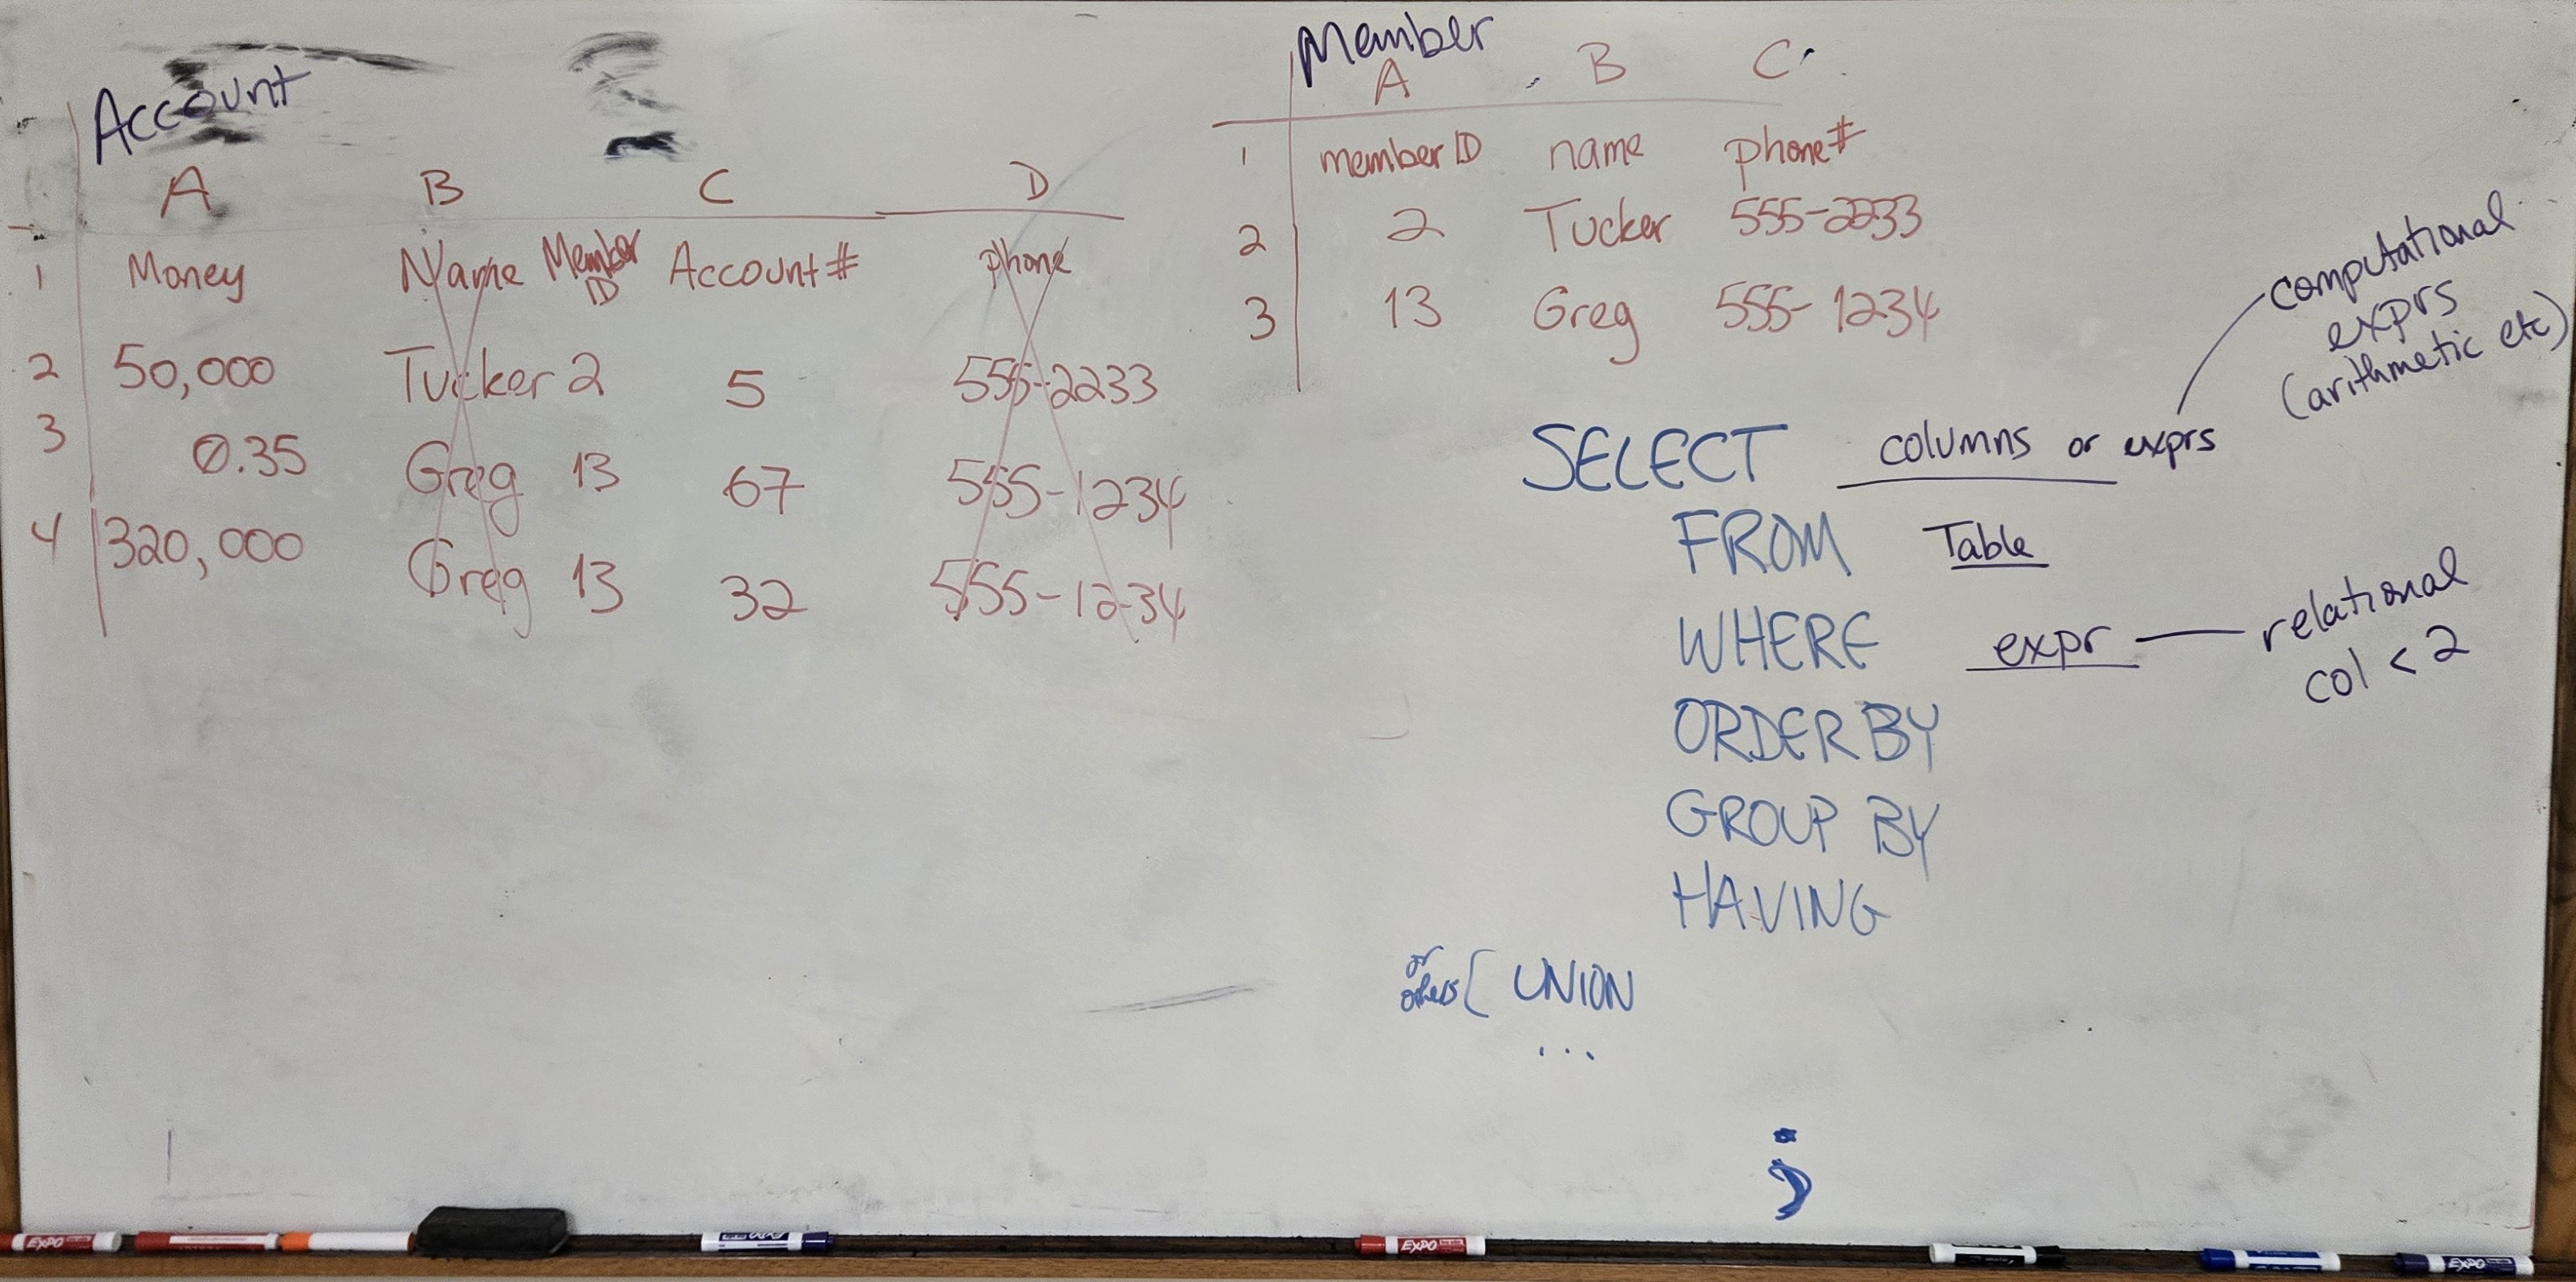 Account
A B C D
1 Money Name Member ID Account # phone
2 50,000 Tucker 2 5 555-2233
3 0.35 Greg 13 67 555-1234
4 320,000 Greg 13 32 555-1234
Member
A B C
1 member ID name phone#
2 2 Tucker 555-2233
3 13 Greg 555-1234
SELECT columns or exprs
computational
exprs
(arithmetic etc)
FROM Table
WHERE expr — relational
col < 2
ORDER BY
GROUP BY
HAVING
or
others [ UNION
...
;
EXPO
EXPO
EXPO